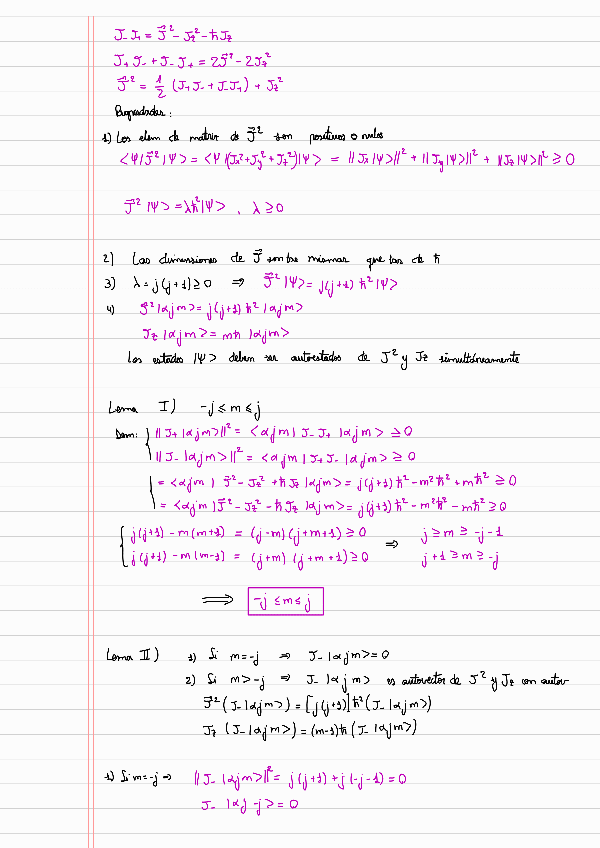 J₋J₊ = J⃗² - J_z² - ħJ_z
J₊J₋ + J₋J₊ = 2J⃗² - 2J_z²
J⃗² = 1/2 (J₊J₋ + J₋J₊) + J_z²
Propiedades:
1) Los elem de matriz de J⃗² son positivos o nulos
<Ψ|J⃗²|Ψ> = <Ψ|(Jx²+Jy²+Jz²)|Ψ> = ||Jx|Ψ>||² + ||Jy|Ψ>||² + ||Jz|Ψ>||² ≥ 0
J⃗²|Ψ> = λħ²|Ψ> , λ ≥ 0
2) Las dimensiones de J⃗ son las mismas que las de ħ
3) λ = j(j+1) ≥ 0 ⇒ J⃗²|Ψ> = j(j+1)ħ²|Ψ>
4) J⃗²|αjm> = j(j+1)ħ²|αjm>
J_z|αjm> = mħ|αjm>
Los estados |Ψ> deben ser autoestados de J² y Jz simultáneamente
Lema I) -j ≤ m ≤ j
Dem: ||J₊|αjm>||² = <αjm|J₋J₊|αjm> ≥ 0
||J₋|αjm>||² = <αjm|J₊J₋|αjm> ≥ 0
= <αjm| J⃗² - Jz² + ħJz|αjm> = j(j+1)ħ² - m²ħ² + mħ² ≥ 0
= <αjm|J⃗² - Jz² - ħJz|αjm> = j(j+1)ħ² - m²ħ² - mħ² ≥ 0
j(j+1) - m(m+1) = (j-m)(j+m+1) ≥ 0 ⇒ j ≥ m ≥ -j-1
j(j+1) - m(m-1) = (j+m)(j+m+1) ≥ 0 j+1 ≥ m ≥ -j
⟹ -j ≤ m ≤ j
Lema II) 1) Si m=-j ⇒ J₋|αjm> = 0
2) Si m>-j ⇒ J₋|αjm> es autovector de J² y Jz con autov
J⃗²(J₋|αjm>) = [j(j+1)]ħ²(J₋|αjm>)
Jz (J₋|αjm>) = (m-1)ħ(J₋|αjm>)
1) Si m=-j ⇒ ||J₋|αjm>||² = j(j+1) + j(-j-1) = 0
J₋|αj -j> = 0